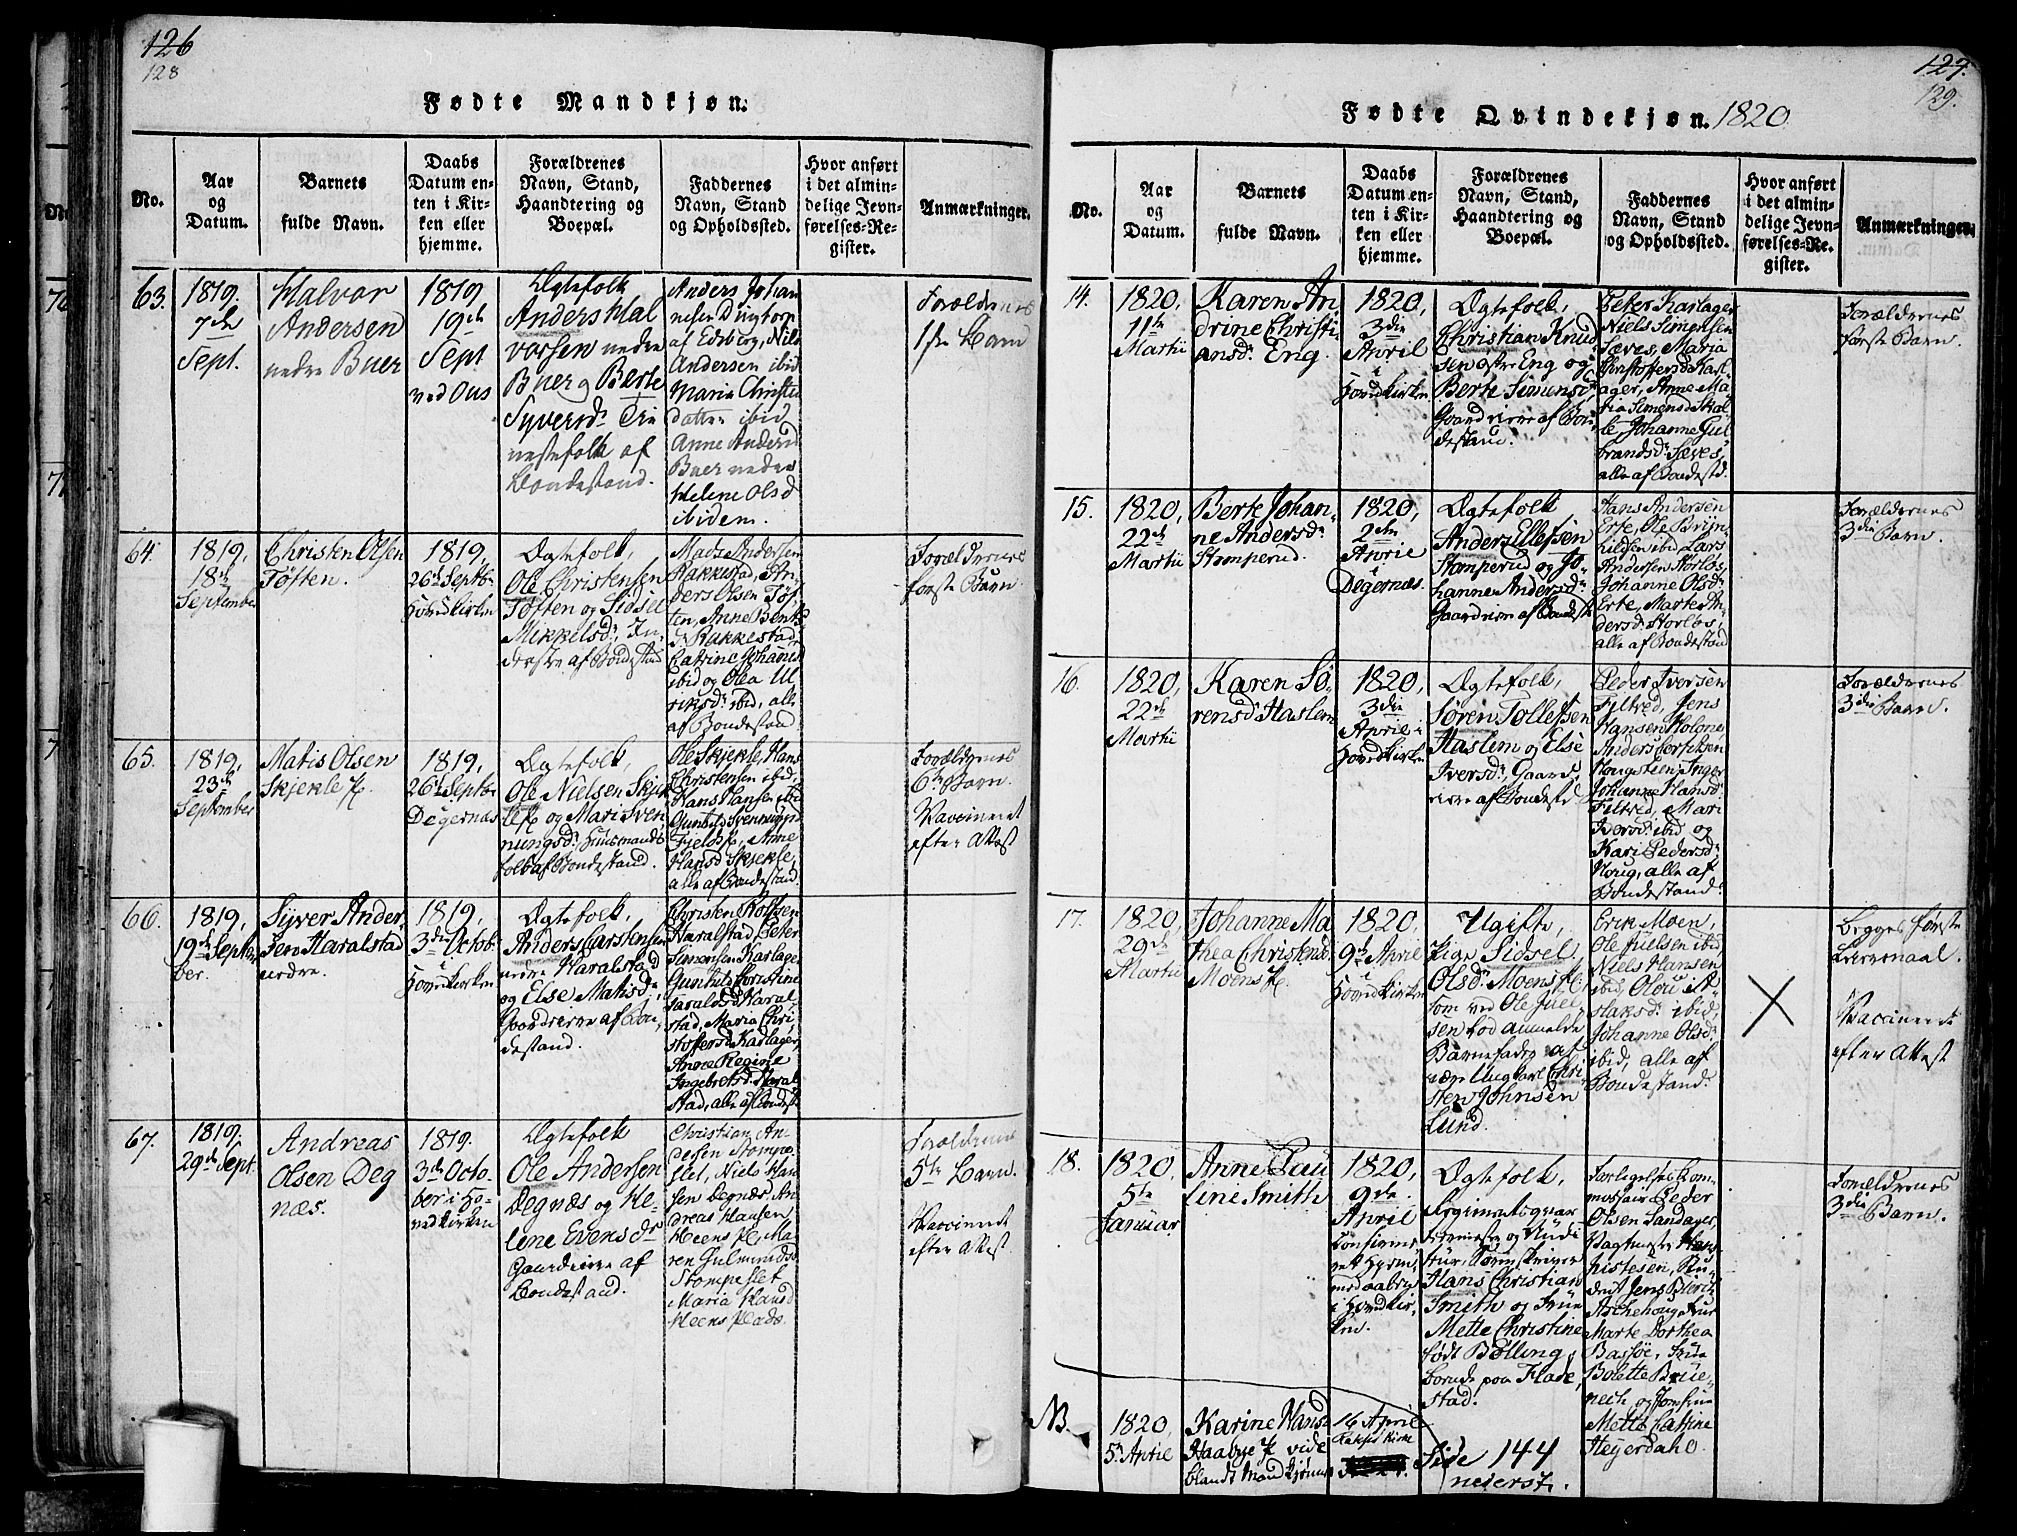 126
128
Fødte Mandkjøn.
No.
Aar
og
Datum.
Barnets
fulde Navn.
Daabs
Datum en-
ten i Kir-
ken eller
hjemme.
Forældrenes
Navn, Stand,
Haandtering og
Boepæl.
Faddernes
Navn, Stand
og Opholdssted.
Hvor anført
i det almin-
delige Jevn-
førelses-Re-
gister.
Anmærkninger.
63.
1819.
7de
Sept.
Halvor
Andersen
nedre Buer
1819
19de
Sept
ved Ous
Ægtefolk
Anders Hal
vorsen nedre
Buer og Berte
Syversd. Tie
nestefolk af
Bondestand.
Anders Johan
nesen
af Edsberg, Nils
Andersen ibid
Maria Christens
datter ibid
Anne Andersd
Buer nedre
Helene Olsd
ibidem.
Forældrenes
1ste Barn
64.
1819,
18de
September
Christen Olsen
Tøften.
1819,
26de Septbr
Hovedkirken
Ægtefolk,
Ole Christensen
Tøften og Sidsel
Mikkelsd., In-
derste af Bondestand
Mads Andersen
Rakkestad, An-
ders Olsen Tøf-
ten, Anne Bents
d. Rakkestad,
Catrine Johannesd
ibid og Olea Ul
riksd. ibid, alle
af Bondestand
Forældrenes
første Barn
65.
1819,
23de
September
Matis Olsen
Skjekle
1819,
26de Septbr
Degernæs
Ægtefolk,
Ole Nielsen Skjek
le og Mari Sven
nungsd. Huusmands
folk af Bondestand.
Ole Skjekle, Hans
Christensen ibid,
Hans Hansen ibid
Gunhild Svennungsd
Anne
Hansd Skjekle,
alle af Bondestand.
Forældrenes
6te Barn.
Vaccineret
efter Attest
66.
1819,
19de Septem
ber.
Syver Ander-
sen Haralstad
nedre.
1819,
3die Octob.
i
Hovedkirken
Ægtefolk,
Anders Carstensen
nedre Haralstad
og Else Matisd.
Gaardeiere af Bon
destand.
Christen Rolfsen
Haralstad, Peter
Simensen Karlager
Gunhild Christine
Haralsd Haral
stad, Maria Chri
stoffersd Karlager,
Anne Regine
Ingebretsd. Haral
stad, alle af Bondest.
67.
1819.
29de Sept.
Andreas
Olsen Deg
næs.
1819.
3de Octo-
ber i Ho-
vedkirken
Ægtefolk
Ole Andersen
Degnæs og He-
lene Evensdr
Gaardeiere af
Bondestand.
Christian An-
dersen Stompe-
flet, Niels Han
sen Degnæs, An
dreas Hansen
Heens Pl, Ma-
ren Gulmundsd
Stompeflet
Maria Hansd
Heens Plads.
Forældrenes
5te Barn.
Vaccinerede
efter Attest.
127.
129.
Fødte Qvindekjøn. 1820
No.
Aar
og
Datum.
Barnets
fulde Navn.
Daabs
Datum en-
ten i Kir-
ken eller
hjemme.
Forældrenes
Navn, Stand,
Haandtering og
Boepæl.
Faddernes
Navn, Stand
og Opholdssted.
Hvor anført
i det almin-
delige Jevn-
førelses-Re-
gister.
Anmærkninger.
14.
1820,
11te
Martii
Karen An
drine Christi
ansd. Eng.
1820,
3die
April
i
Hovedkirken
Ægtefolk,
Christian Knud
sen østre Eng og
Berte Simensd,
Gaardeiere af Bon
destand.
Peter Karlager
Niels Simensen
Sæves, Maria
Christoffersd Karl
ager, Anne Ma
ria Simensd Skal
le, Johanne Gul
brandsd. Sæves,
alle af Bondestd.
Forældrenes
første Barn.
15.
1820,
22de
Martii
Berte Johan-
ne Andersd.
Stomperud.
1820,
2den
April
i
Degernæs.
Ægtefolk,
Anders Ellefsen
Stomperud og Jo
hanne Andersd.
Gaardeiere af Bondest.
Hans Andersen
Erte, Ole Bryn-
hildsen ibid Lars
Andersen Storløs,
Johanne Olsd.
Erte, Marte An-
dersd. Storløs,
alle af Bondestand
Forældrenes
3die Barn.
16.
1820,
22de
Martii
Karen Sø-
rensd. Haslem
1820,
3die
April i
Hovedkirken
Ægtefolk,
Søren Tollefsen
Haslem og Else
Iversd., Gaard
eiere af Bondestd
Peder Iversen
Filtred, Jens
Hansen Holøne
Anders
Hougsteen, Inger
Johanne Hansd.
Filtred, Mari
Iversd. ibid og
Kari Pedersd.
Houg, alle af
Bondestand.
Forældrenes
3die Barn.
17.
1820,
29de
Martii
Johanne Ma
thea Christensd.
Moens
1820,
9de April
i
Hovedkirken
Ugifte,
Pige Sidsel
Olsd. Moens
som ved Ole Juel
sen lod anmelde
Barnefader at
være Ungkarl Chri
sten Johnsen
Lund.
Erik Moen,
Ole Juelsen ibid
Niels Hansen
ibid, Oleu A-
slaksd. ibid,
Johanne Olsd.
ibid, alle af
Bondestand.
X
Begges første
Leiermaal.
Vaccinerede
efter Attest
18.
1820.
5te
Januar
Anne Pau
line Smith
1820,
9de
April
i Hovedkir-
ken.
Ægtefolk,
Hans Christian
Smith og Frue
Mette Christine
født Bølling,
boende paa Flade-
stad.
Forligelses Com-
missair Peder
Olsen Sandager,
Jens
Aschehoug, Frue
Marte Dorthea
Bassøe, Frue
Bolette Brue-
nech og Jomfrue
Mette Catrine
Heyerdahl.
Forældrenes
3die Barn.
NB.
1820
5te April
Karine Hansd
Haabye vide
blandt Mandkjønnet
16 April
Side 144
nederst.